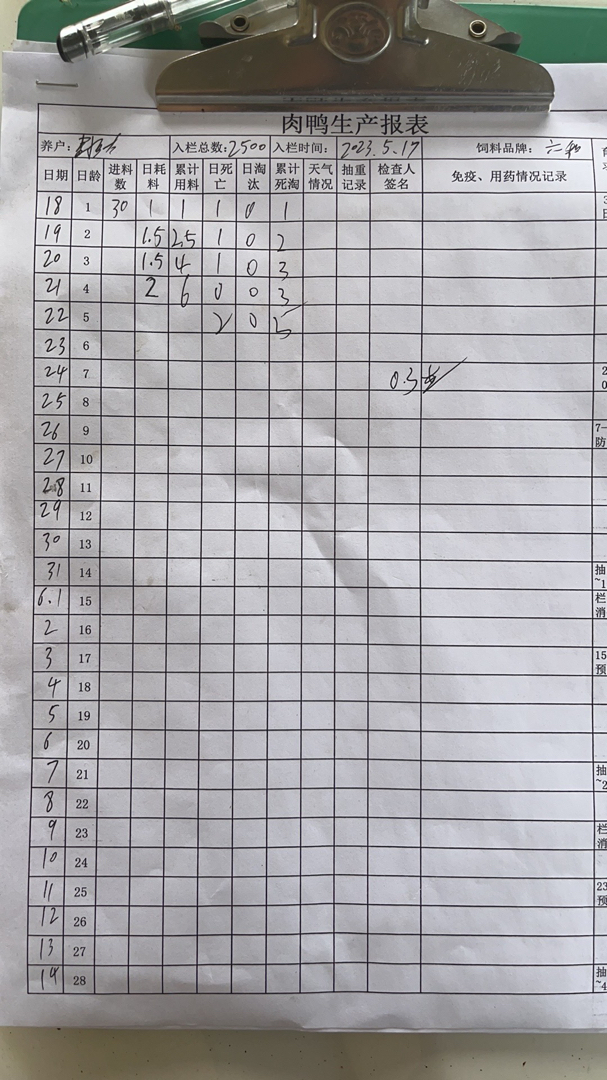 肉鸭生产报表
养户: 入栏总数:2500 入栏时间: 2023.5.17 饲料品牌: 六和
日期 日龄 进料数 日耗料 累计用料 日死亡 日淘汰 累计死淘 天气情况 抽重记录 检查人签名 免疫、用药情况记录
18 1 30 1 1 1 0 1
19 2 1.5 2.5 1 0 2
20 3 1.5 4 1 0 3
21 4 2 6 0 0 3
22 5 2 0 5
23 6
24 7 0.3 2
25 8
26 9 7-
防
27 10
28 11
29 12
30 13
31 14 抽
~1
6.1 15 栏
消
2 16
3 17 15
预
4 18
5 19
6 20
7 21 抽
~2
8 22
9 23 栏
消
10 24
11 25 23
预
12 26
13 27
14 28 抽
~4